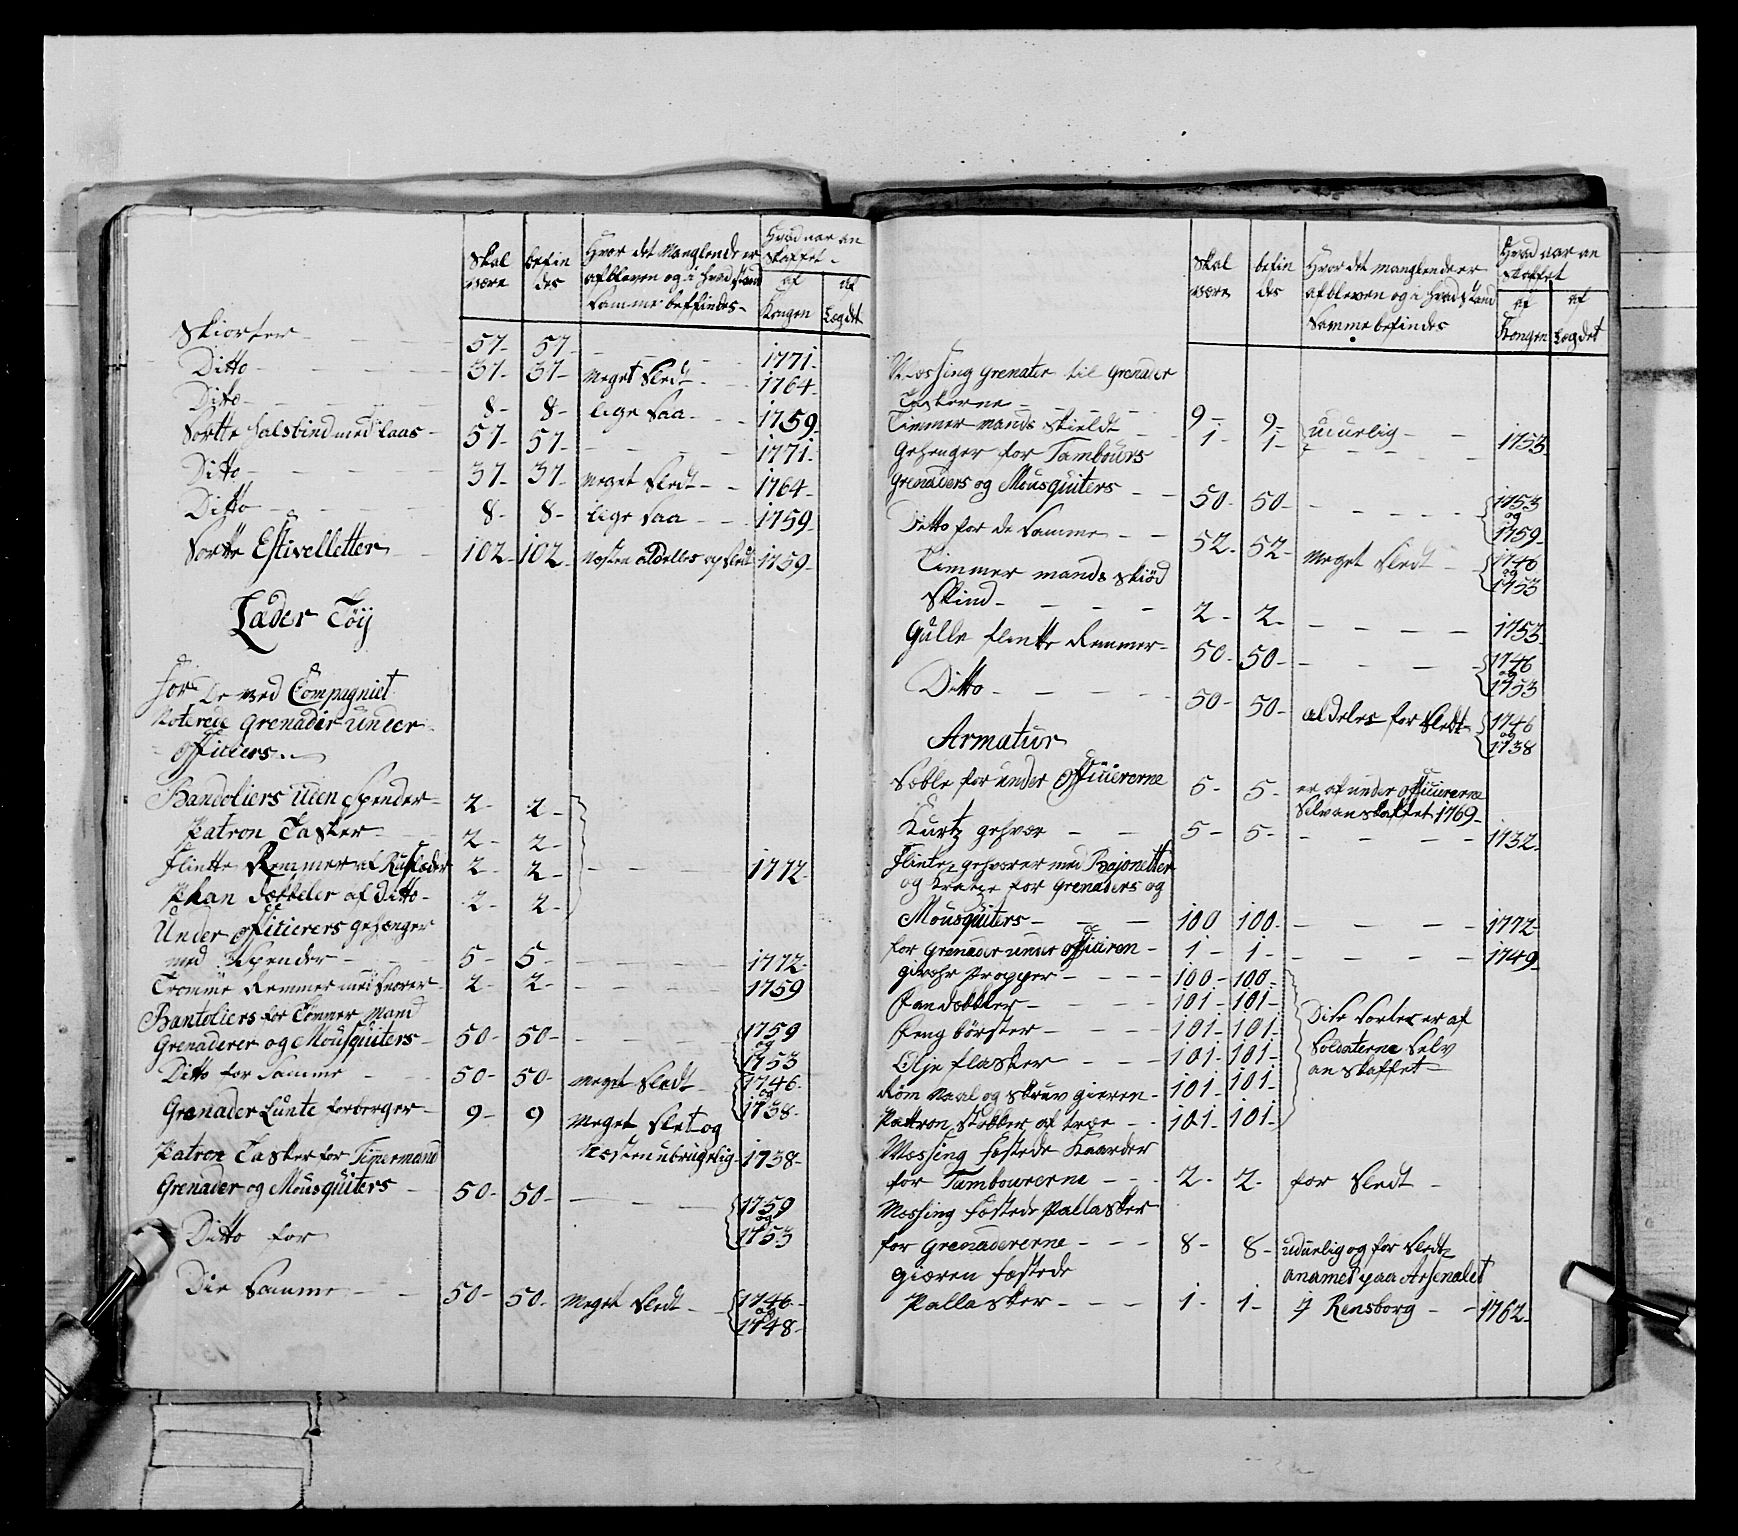 Skal være
befin des
Hvor det Manglende er
afbleven og i hvad stand
samme beffindes-
Hvad aar an
skaffet-
af Kongen
af Lægdet
Skiorter - 57- 57- - 1771-
Ditto - 37- 37- Meget Sledt - 1764-
Ditto - 8- 8- lige saa - 1759-
Sortte halsbind med laas - 57- 57- - 1771-
Ditto - 37- 37- Meget Sledt - 1764-
Ditto - 8- 8- lige saa - 1759-
Sortte Estivelletter - 102- 102- Næsten aldelles opsledt 1759-
Læder Tøy
for De ved Compagniet
Noterede Grenader Under
officiers
Bandoliers uden Spender - 2- 2-
Patron Tasker - 2- 2-
Flintte Remmer af Ruslæder 2- 2- - 1772-
Phan dækkeler af Ditto - 2- 2-
Under officierers gehænger
med Spender - 5- 5- - 1772-
Tromme Remmer med Snorer - 2- 2- - 1759
Bantoliers for Tømmer Mand
Grenaderer og Mousquiters - 50- 50- - 1759 og 1753
Ditto for Samme - 50- 50- meget Sledt - 1746- og 1738-
Granader Lunte forberger - 9- 9 Meget Slet og
næsten ubrugelig - 1738-
Patron Tasker for Timermand
Grenader og Mousquiters - 50- 50- - 1759 og 1753
Ditto for
Die Samme - 50- 50- Meget Sledt - 1746- og 1748-
Skal være
befin des
Hvor det manglende er
afbleven og i hvad stand
Samme befindes
Hvad aar an
skaffet
af Kongen
af Lægdet
Messing Grenater til Grenader
Taskerne - 9- 9- uduelig - 1753-
Timmer mands Skieldt - 1- 1-
Gehenger for Tambours
Grenaders og Mousquiters - 50- 50- - 1753 og 1759-
Ditto for de Samme - 52- 52- Meget Sledt - 1746 og 1753
Timmer mands Skiød
Skind - 2- 2- - 1753-
Gulle flintte Remmer - 50- 50- - 1746 og 1753
Ditto - 50- 50- aldeles for Sledt - 1746 og 1738
Armatur
Sæble for under Officiererne 5- 5- er af under officiererne
Selv anskaffet 1769-
Kurtz gehvær - 5- 5- - 1732-
Flinte gehværer med Bajonetter
og Kratze for Grenaders og
Mousquiters - 100 100- - 1772-
for Grenader under officieren - 1- 1- - 1749-
gevæhr Propper - 100- 100-
Pandækker - 101- 101-
Feng børster - 101- 101- Dise Sorter er af
Olje flasker - 101- 101- Soldaterne Selv
Røm Naal og Skruv gieren - 101- 101- an skaffet-
Pattron Støkker af træe - 101- 101-
Messing fæstede Kaarder
for Tambourerne - 2- 2- for Sledt -
Messing fæstede Pallasker
for Grenadererne - 8- 8- uduelig og for Sledt
Gieren fæstede anamet paa Arsenalet
Pallasker - 1- 1- ij Rensborg - 1762-